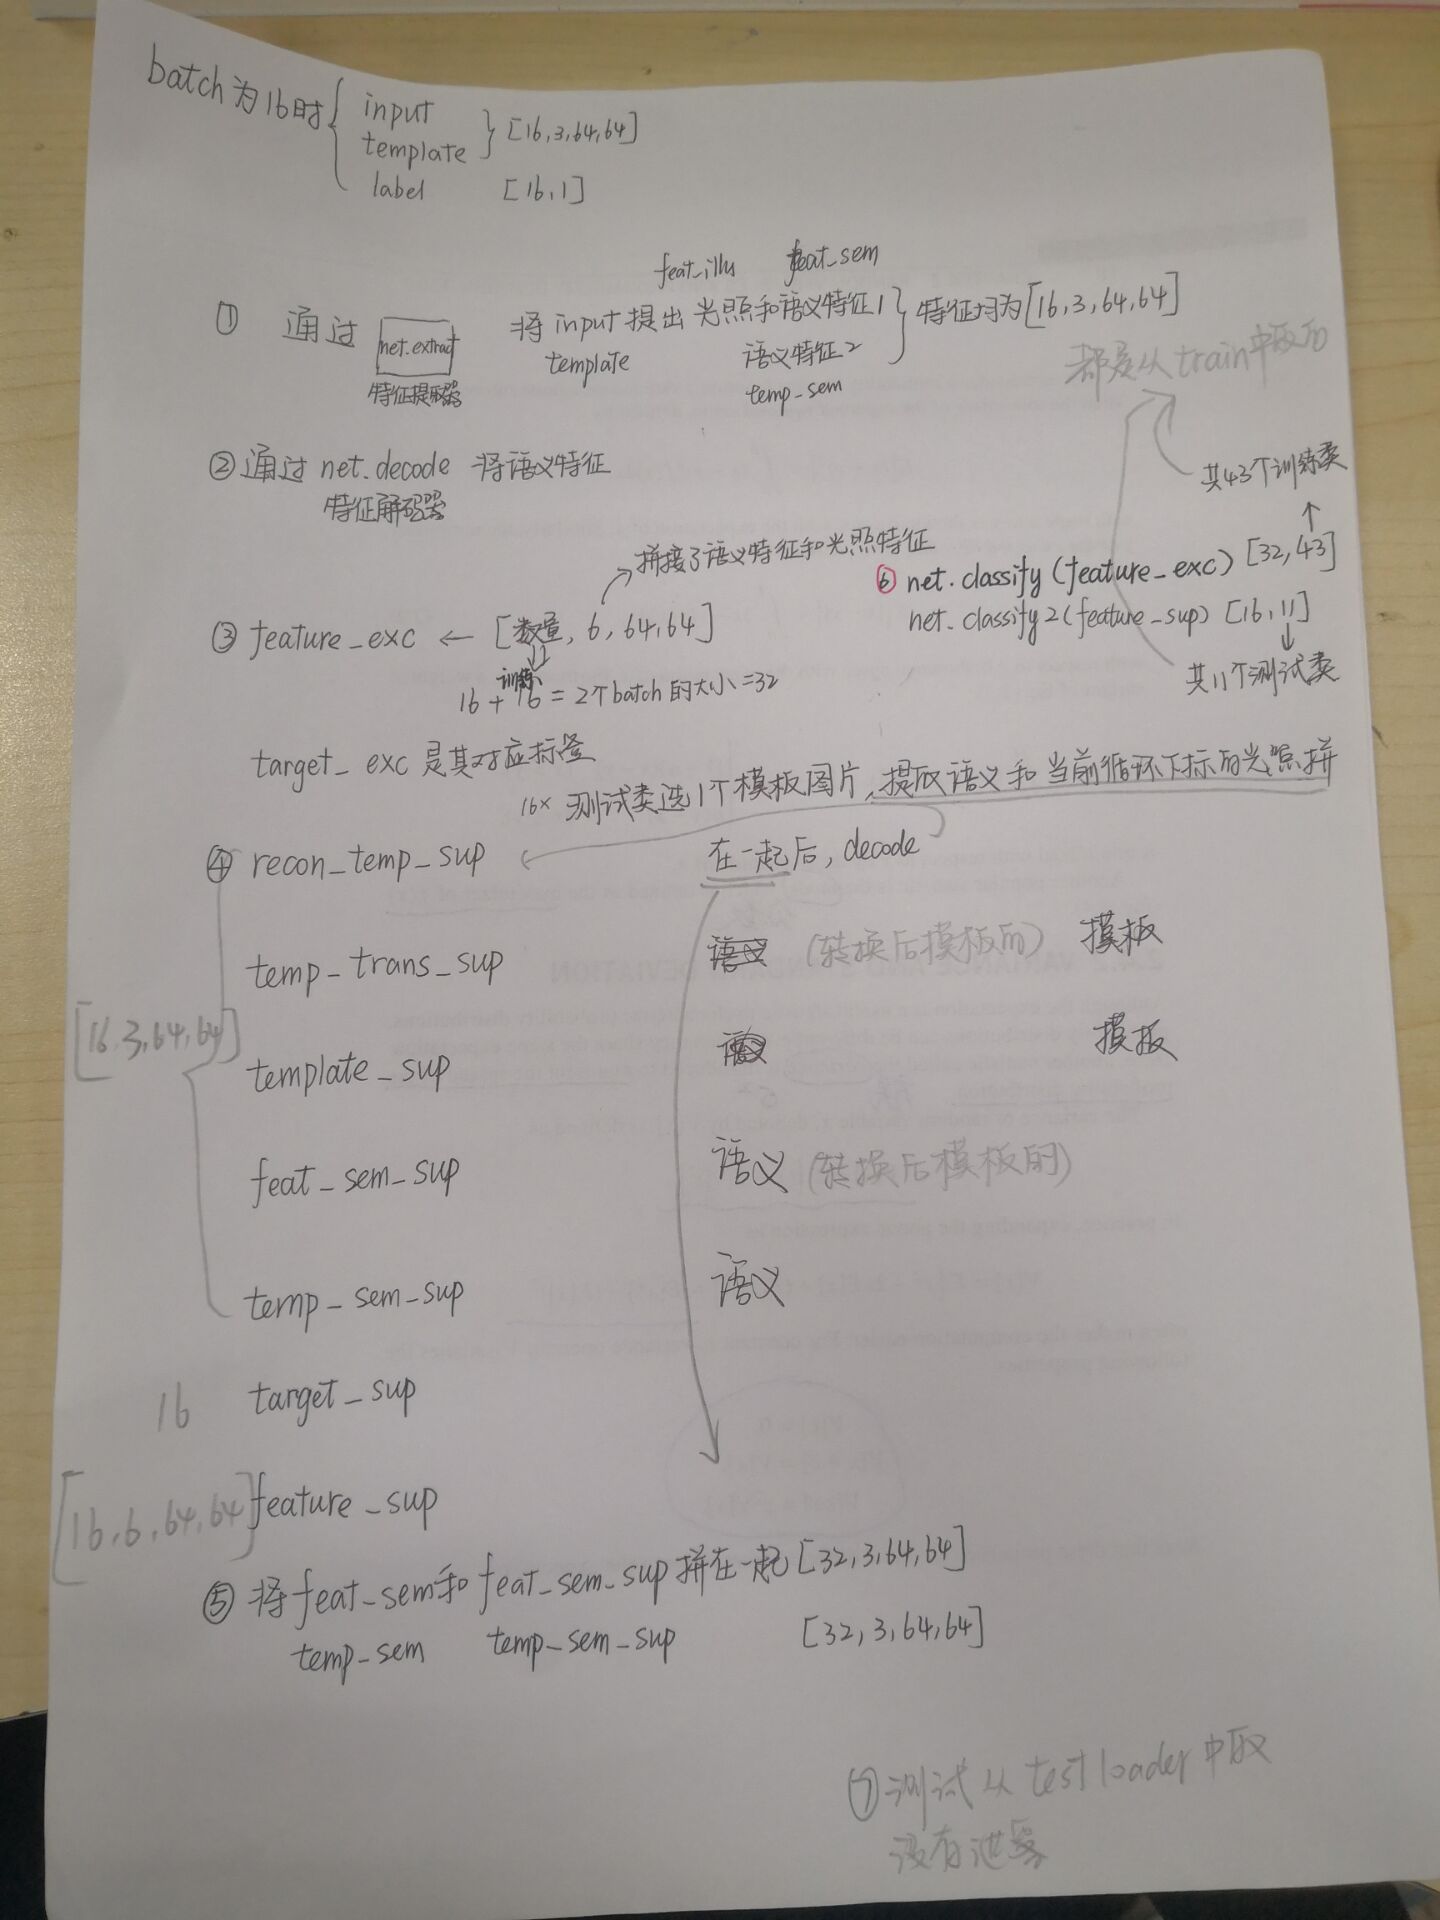 batch为16时
input
template
[16,3,64,64]
label [16,1]
feat_illu feat_sem
① 通过 net.extract 将input提出光照和语义特征1 特征均为[16,3,64,64]
特征提取器 template 语义特征2
temp_sem
都是从train中取的
② 通过 net.decode 将语义特征
特征解码器
共43个训练类
拼接了语义特征和光照特征
⑥ net.classify(feature_exc) [32,43]
net.classify2(feature_sup) [16,11]
共11个测试类
③ feature_exc ← [数量,6,64,64]
训练
16+16=2个batch的大小=32
target_exc是其对应标签
16x 测试类选1个模板图片,提取语义和当前循环下标的光照拼
④ recon_temp_sup 在一起后,decode
temp_trans_sup 语义 (转换后模板的) 模板
[16,3,64,64]
template_sup 语义 模板
feat_sem_sup 语义 (转换后模板的)
temp_sem_sup 语义
16 target_sup
[16,6,64,64] feature_sup
⑤ 将feat_sem和feat_sem_sup拼在一起[32,3,64,64]
temp_sem temp_sem_sup [32,3,64,64]
⑦ 测试从testloader中取
没有泄露